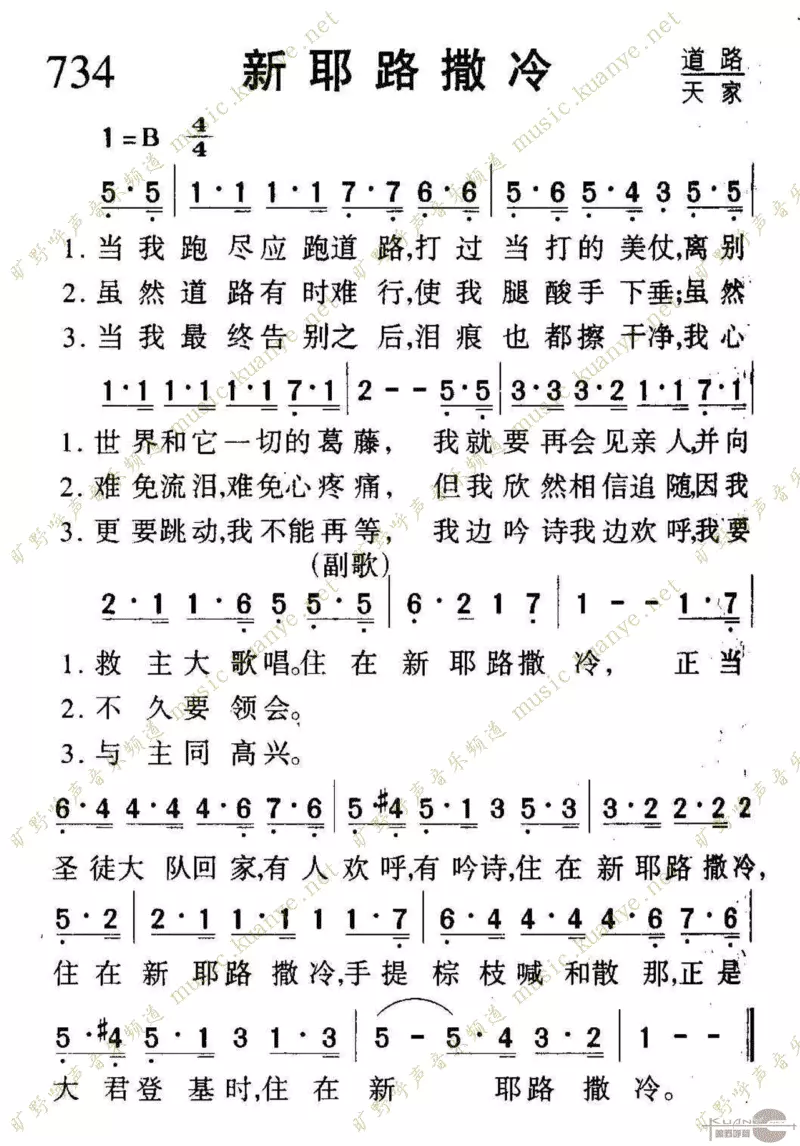 734 新耶路撒冷 道路
天家
1=B 4/4
5·5 | 1·1 1·1 7·7 6·6 | 5·6 5·4 3 5·5
1.当我跑尽应跑道路,打过当打的美仗,离别
2.虽然道路有时难行,使我腿酸手下垂;虽然
3.当我最终告别之后,泪痕也都擦干净,我心
1·1 1·1 1·1 7·1 | 2 - - 5·5 | 3·3 3·2 1·1 7·1
1.世界和它一切的葛藤,我就要再会见亲人,并向
2.难免流泪,难免心疼痛,但我欣然相信追随,因我
3.更要跳动,我不能再等,我边吟诗我边欢呼,我要
(副歌)
2·1 1·6 5 5·5 | 6·2 1 7 | 1 - - 1·7
1.救主大歌唱。住在新耶路撒冷,正当
2.不久要领会。
3.与主同高兴。
6·4 4·4 4·6 7·6 | 5·#4 5·1 3 5·3 | 3·2 2·2 2
圣徒大队回家,有人欢呼,有吟诗,住在新耶路撒冷,
5·2 | 2·1 1·1 1 1·7 | 6·4 4·4 4·6 7·6
住在新耶路撒冷,手提棕枝喊和散那,正是
5·#4 5·1 3 1·3 | 5 - 5·4 3·2 | 1 - - ‖
大君登基时,住在新耶路撒冷。
旷野呼声音乐频道 music.kuanye.net
KUANYE
旷野呼声